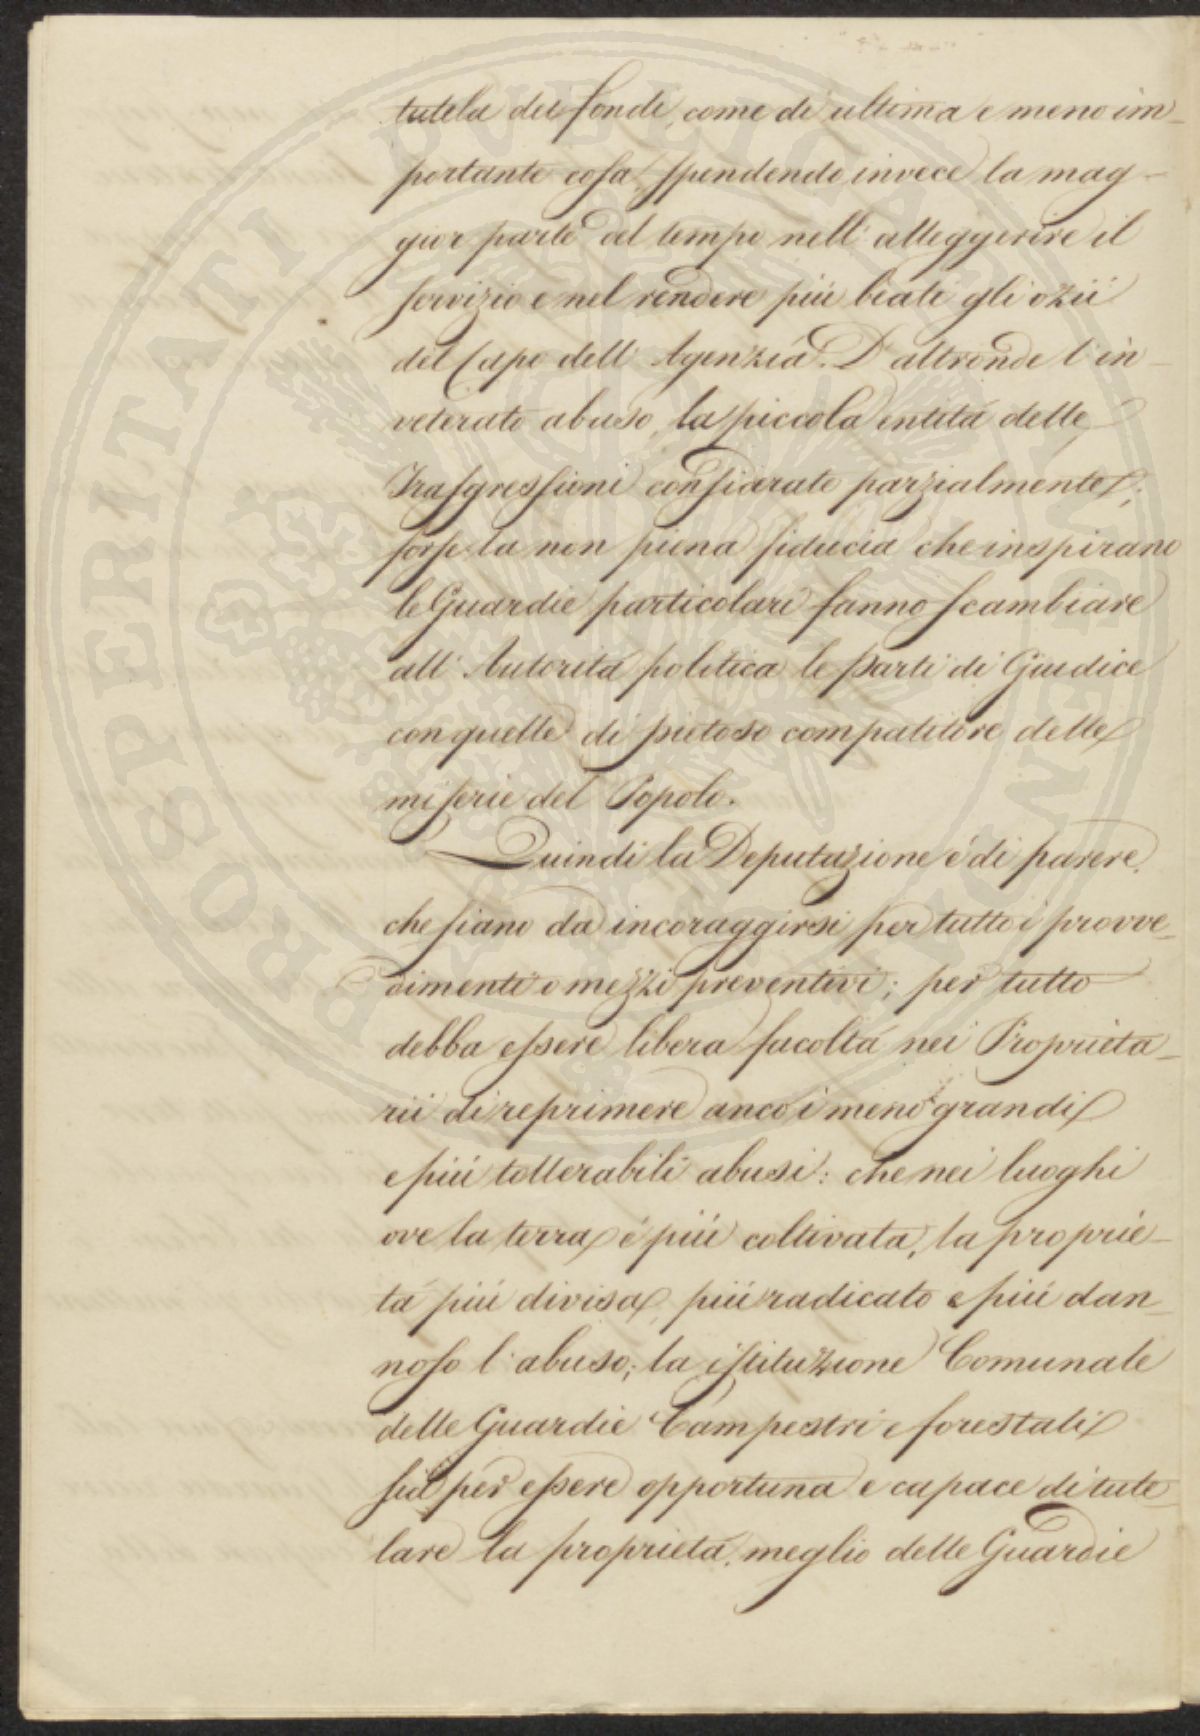 tutela dei fondi, come di ultima e meno im-
portante cosa, spendendo invece la mag-
gior parte del tempo nell'alleggerire il
servizio e nel rendere più beati gli ozii
del Capo dell'Agenzia. D'altronde l'in-
veterato abuso, la piccola entità delle
Trasgressioni considerate parzialmente;
forse la non piena fiducia che inspirano
le Guardie particolari fanno scambiare
all'Autorità politica le parti di Giudice
con quelle di pietoso compatitore delle
miserie del Popolo.
Quindi la Deputazione è di parere,
che siano da incoraggirsi per tutto i provve-
dimenti o mezzi preventivi; per tutto
debba essere libera facoltà nei Proprieta-
rii di reprimere anco i meno grandi
e più tollerabili abusi: che nei luoghi
ove la terra è più coltivata, la proprie-
tà più divisa, più radicato e più dan-
noso l'abuso; la istituzione Comunale
delle Guardie Campestri e forestali
sia per essere opportuna e capace di tute-
lare la proprietà, meglio delle Guardie
PROSPERITATI PUBLICAE AUGENDAE